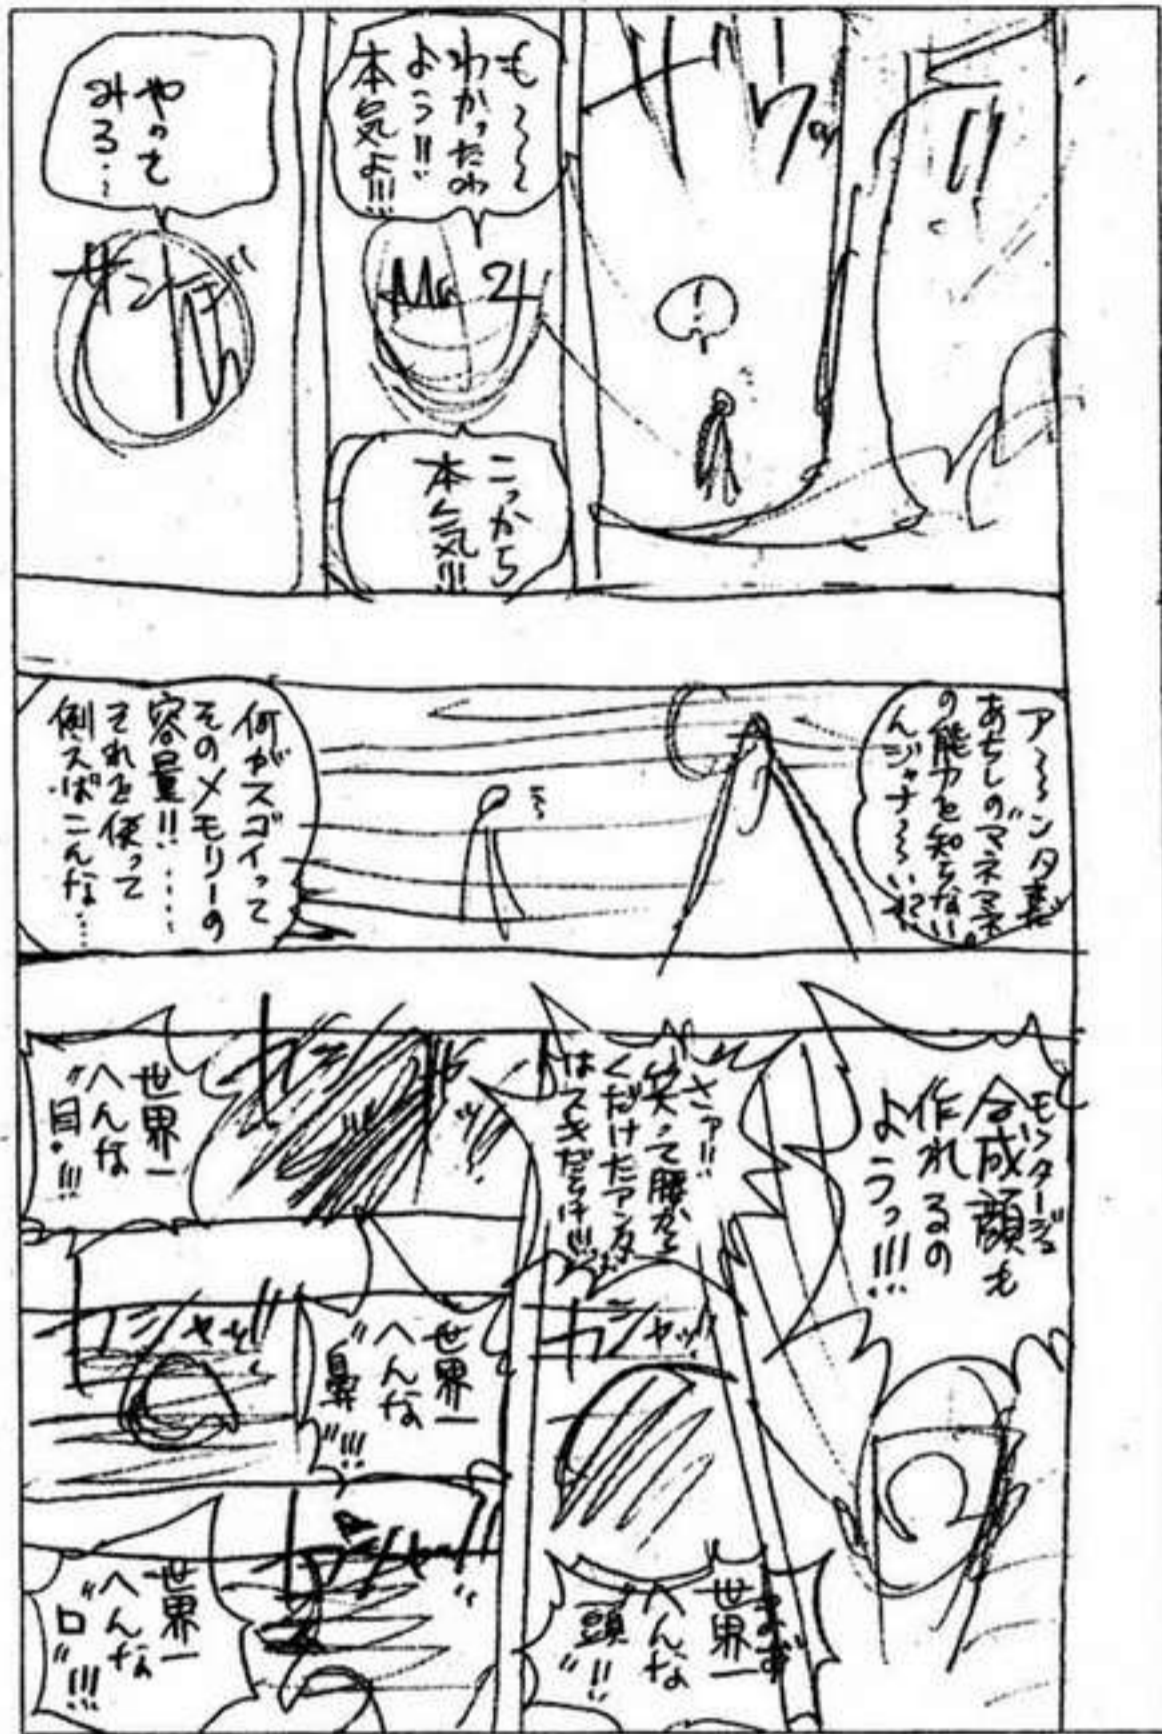 !
も〜〜〜
わかったわ
よう!!
本気よ!!!
Mr 2
こっから
本気!!!
やって
みろ…
サンジ
ア〜〜ンタまだ
あちしのマネマネ
の能力を知らない
んジャナ〜〜い?
何がスゴイって
そのメモリーの
容量!!……
それを使って
例えばこんな……
モンタージュ
合成顔も
作れるの
ようっ!!!
さァ!!
笑って腰から
くだけたアンタ
はスキだらけ!!!
カシャッ!!
まず
世界一
へんな
"頭"!!
世界一
へんな
"目"!!!
世界一
へんな
"鼻"!!!
カシャッ!!
世界一
へんな
"口"!!!
カシャッ!!